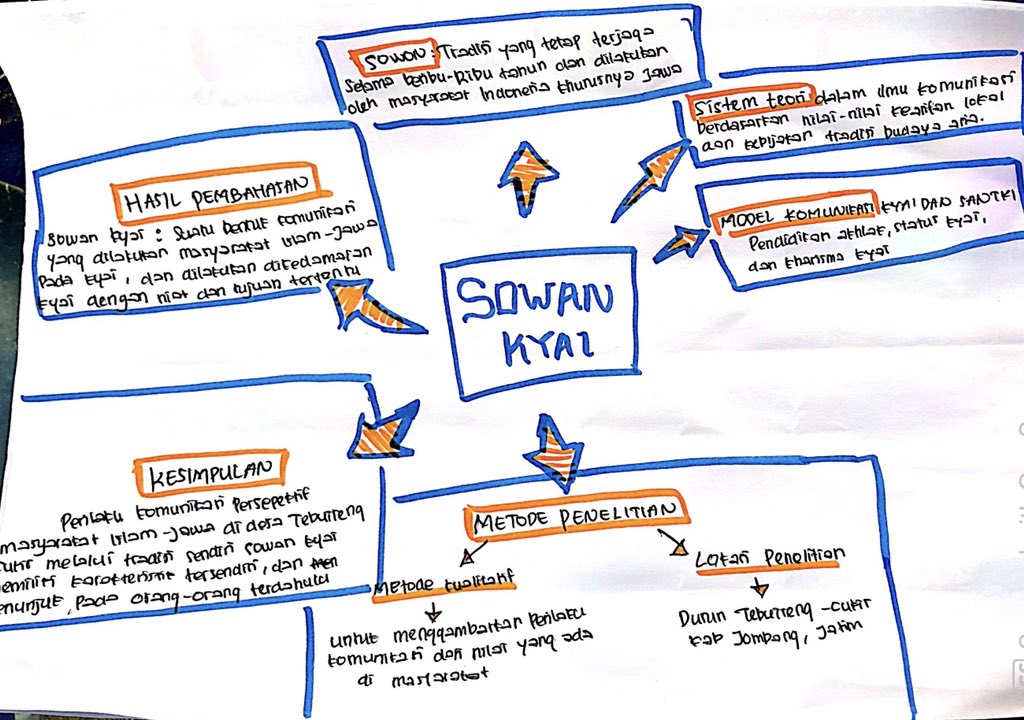 SOWAN : Tradisi yang tetap terjaga
Selama beribu-Ribu tahun dan dilakukan
oleh masyarakat Indonesia khususnya Jawa
Sistem teori dalam ilmu komunikasi
berdasarkan nilai-nilai kearifan lokal
dan kebijakan tradisi budaya asia.
MODEL KOMUNIKASI KYAI DAN SANTRI
Pendidikan akhlak, status kyai,
dan kharisma kyai
HASIL PEMBAHASAN
Sowan kyai : Suatu bentuk komunikasi
yang dilakukan masyarakat Islam-Jawa
Pada kyai, dan dilakukan dikediaman
kyai dengan niat dan tujuan tertentu
SOWAN
KYAI
KESIMPULAN
Perilaku komunikasi Persepektif
masyarakat Islam-Jawa di desa Tebuireng
cukir melalui tradisi sendiri sowan kyai
memiliki karakteristik tersendiri, dan
menunjuk, Pada orang-orang terdahulu
METODE PENELITIAN
Metode kualitatif
untuk menggambarkan Perilaku
komunikasi dan nilai yang ada
di masyarakat
Latar Penelitian
Dusun Tebuireng - cukir
kab Jombang, Jatim